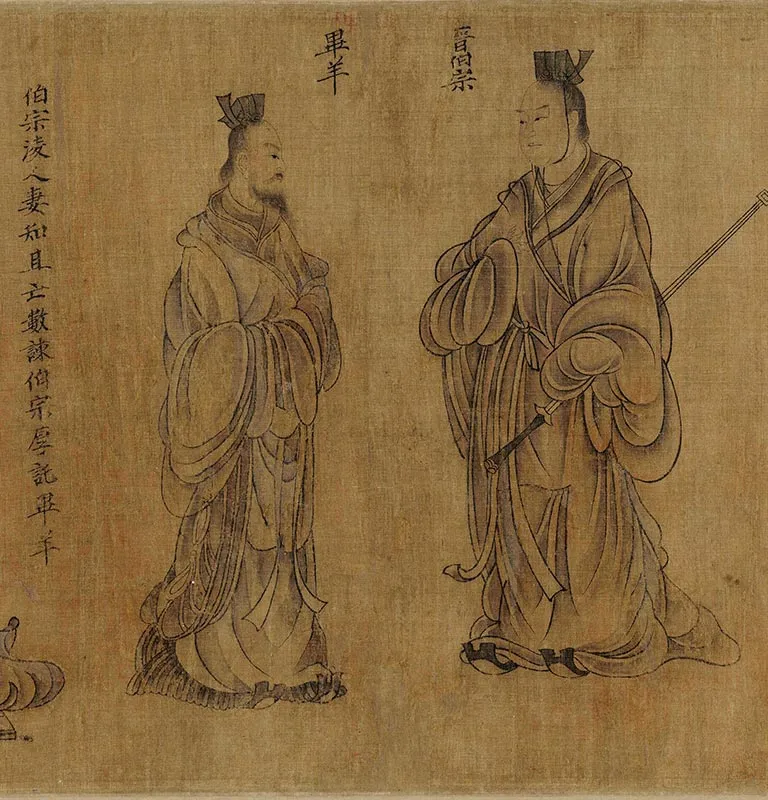 晉伯宗
畢羊
伯宗凌人妻知且亡數諫伯宗厚託畢羊